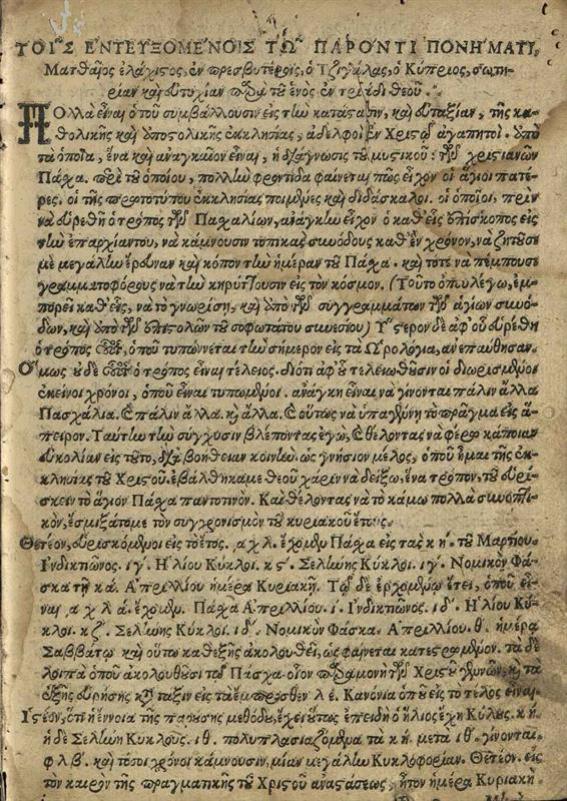 ΤΟΙ͂Σ ἘΝΤΕΥΞΟΜΈΝΟΙΣ ΤΩ͂ ΠΑΡΟΝΤΙ ΠΟΝΗΜΑΤΙ,
Ματθαῖος ἐλάχιστος, ἐν πρεσβυτέροις, ὁ Τζιγάλας, ὁ Κύπριος, σωτη-
ρίαν καὶ εὐτυχίαν παρὰ τοῦ ἑνὸς ἐν τριάδι θεοῦ.
ΠΟλλὰ εἶναι ὁποῦ συμβάλλουσιν εἰς τὴν κατάστασιν, καὶ εὐταξίαν, τῆς κα-
θολικῆς καὶ ἀποστολικῆς ἐκκλησίας, ἀδελφοὶ ἐν Χριστῷ ἀγαπητοί. ἀπὸ
τὰ ὁποῖα, ἕνα καὶ ἀναγκαῖον εἶναι, ἡ διάγνωσις τοῦ μυστικοῦ τῶν χριστιανῶν
Πάσχα. περὶ τοῦ ὁποίου, πολλὴν φροντίδα φαίνεται πῶς εἶχον οἱ ἅγιοι πατέ-
ρες, οἱ τῆς πρωτοτύπου ἐκκλησίας ποιμένες καὶ διδάσκαλοι. οἱ ὁποῖοι, πρὶν
νὰ εὑρεθῇ ὁ τρόπος τῶν Πασχαλίων, ἀνάγκην εἶχον ὁ καθεὶς ἐπίσκοπος εἰς
τὴν ἐπαρχίαν του, νὰ κάμνουσιν τοπικὰς συνόδους καθ' ἓν χρόνον, νὰ ζητοῦσι
μὲ μεγάλην ἔρευναν καὶ κόπον τὴν ἡμέραν τοῦ Πάσχα. καὶ τότε νὰ πέμπουσι
γραμματοφόρους νὰ τὴν κηρύττουσιν εἰς τὸν κόσμον. (Τοῦτο ὁποῦ λέγω, ἐμ-
πορεῖ καθεὶς, νὰ τὸ γνωρίση, καὶ ἀπὸ τῶν συγγραμμάτων τῶν ἁγίων συνό-
δων, καὶ ἀπὸ τῶν ἐπιστολῶν τοῦ σοφωτάτου συνεσίου) Ὕστερον δὲ ἀφ' οὗ εὑρέθη
ὁ τρόπος αὐτὸς, ὁποῦ τυπώννεται τὴν σήμερον εἰς τὰ Ὡρολόγια, ἀνεπαύθησαν.
Ὅμως οὐδὲ αὐτὸς ὁ τρόπος εἶναι τέλειος. διότι ἀφ' οὗ τελειωθῶσιν οἱ διωρισμένοι
ἐκεῖνοι χρόνοι, ὁποῦ εἶναι τυπωμένοι. ἀνάγκη εἶναι νὰ γίνονται πάλιν ἄλλα
Πασχάλια. Ἐ πάλιν ἄλλα. καὶ ἄλλα. Ἐ οὕτως νὰ ὑπαγένῃ τὸ πρᾶγμα εἰς ἄ-
πειρον. Ταύτην τὴν σύγχυσιν βλέποντας ἐγὼ, Ἐ θέλοντας νὰ φέρω κάποιαν
εὐκολίαν εἰς τοῦτο, διὰ βοήθειαν κοινὴν, ὡς γνήσιον μέλος, ὁποῦ εἶμαι τῆς ἐκ-
κλησίας τοῦ Χριστοῦ. ἐβάλθηκα μὲ θεοῦ χάριν νὰ δείξω, ἕνα τρόπον, τοῦ εὑρί-
σκειν τὸ ἅγιον Πάσχα παντοτινόν. Καὶ θέλοντας νὰ τὸ κάμω πολλὰ συνοπτι-
κὸν, ἔσμιξά τομε τὸν συγχρονισμὸν τοῦ κυριακοῦ ἔτους.
Θετέον, εὑρισκόμενοι εἰς τὸ ἔτος. αχλ. ἔχομεν Πάσχα εἰς τὰς κή. τοῦ Μαρτίου.
Ἰνδικτιῶνος. ιγ΄. Ἡλίου Κύκλοι. κς΄. Σελήνης Κύκλοι. ιγ΄. Νομικὸν Φά-
σκα τῇ κά. Ἀπριλλίου ἡμέρα Κυριακῆ. Τῷ δὲ ἐρχομένῳ ἔτει, ὁποῦ εἶ-
ναι αχλά. ἔχομεν. Πάσχα Ἀπριλλίου. ί. Ἰνδικτιῶνος. ιδ΄. Ἡλίου Κύ-
κλοι. κζ΄. Σελήνης Κύκλοι. ιδ΄. Νομικὸν Φάσκα. Ἀπριλλίου. θ. ἡμέρᾳ
Σαββάτῳ καὶ οὕτω καθεξῆς ἀκολουθεῖ, ὡς φαίνεται κατεστρωμένον. τὰ δὲ
λοιπὰ ὁποῦ ἀκολουθῶσι τοῦ Πάσχα
Ἰστέον, ὅτι ἡ ἔννοια τῆς παρούσης μεθόδου, ἔχει οὕτως ἐπειδὴ ὁ ἥλιος ἔχη Κύκλους. κή.
ἡ δὲ Σελήνη Κύκλους. ιθ. πολυπλασιαζόμενα τὰ κή. μετὰ ιθ. γίνονται.
φλβ. καὶ τόσοι χρόνοι κάμνουσιν, μίαν μεγάλην Κυκλοφορίαν. Θετέον. εἰς
τὸν καιρὸν τῆς πραγματικῆς τοῦ Χριστοῦ ἀναστάσεως, ἦτον ἡμέρα Κυριακὴ